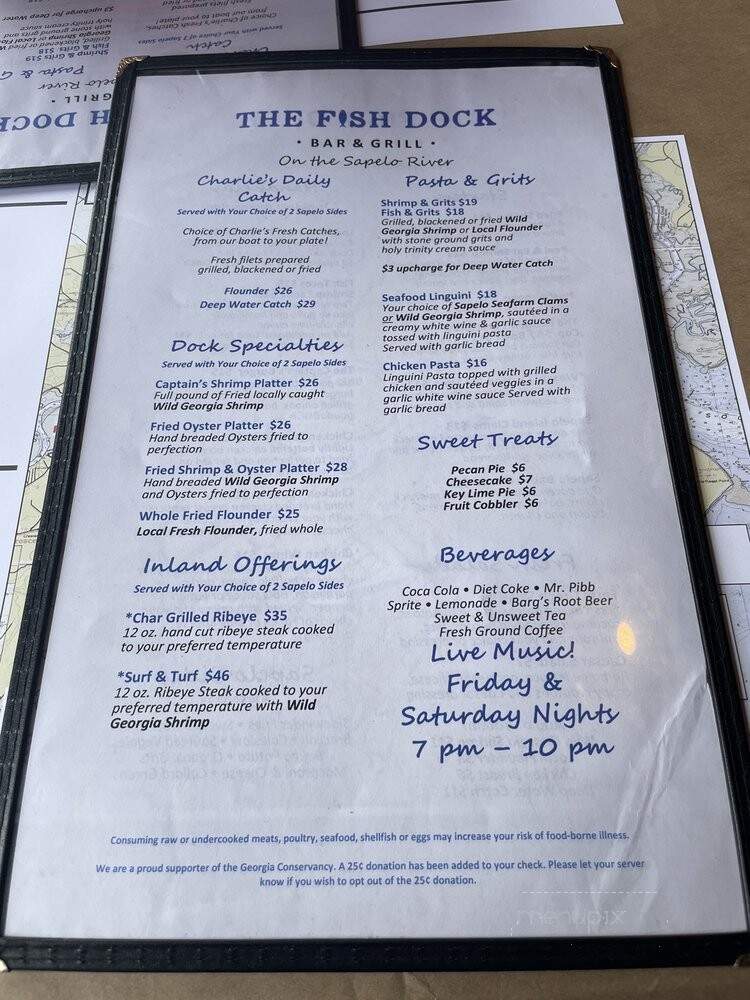 THE FISH DOCK
• BAR & GRILL •
On the Sapelo River
Charlie's Daily
Catch
Served with Your Choice of 2 Sapelo Sides
Choice of Charlie's Fresh Catches,
from our boat to your plate!
Fresh filets prepared
grilled, blackened or fried
Flounder $26
Deep Water Catch $29
Dock Specialties
Served with Your Choice of 2 Sapelo Sides
Captain's Shrimp Platter $26
Full pound of Fried locally caught
Wild Georgia Shrimp
Fried Oyster Platter $26
Hand breaded Oysters fried to
perfection
Fried Shrimp & Oyster Platter $28
Hand breaded Wild Georgia Shrimp
and Oysters fried to perfection
Whole Fried Flounder $25
Local Fresh Flounder, fried whole
Inland Offerings
Served with Your Choice of 2 Sapelo Sides
*Char Grilled Ribeye $35
12 oz. hand cut ribeye steak cooked
to your preferred temperature
*Surf & Turf $46
12 oz. Ribeye Steak cooked to your
preferred temperature with Wild
Georgia Shrimp
Pasta & Grits
Shrimp & Grits $19
Fish & Grits $18
Grilled, blackened or fried Wild
Georgia Shrimp or Local Flounder
with stone ground grits and
holy trinity cream sauce
$3 upcharge for Deep Water Catch
Seafood Linguini $18
Your choice of Sapelo Seafarm Clams
or Wild Georgia Shrimp, sautéed in a
creamy white wine & garlic sauce
tossed with linguini pasta
Served with garlic bread
Chicken Pasta $16
Linguini Pasta topped with grilled
chicken and sautéed veggies in a
garlic white wine sauce Served with
garlic bread
Sweet Treats
Pecan Pie $6
Cheesecake $7
Key Lime Pie $6
Fruit Cobbler $6
Beverages
Coca Cola • Diet Coke • Mr. Pibb
Sprite • Lemonade • Barg's Root Beer
Sweet & Unsweet Tea
Fresh Ground Coffee
Live Music!
Friday &
Saturday Nights
7 pm – 10 pm
Consuming raw or undercooked meats, poultry, seafood, shellfish or eggs may increase your risk of food-borne illness.
We are a proud supporter of the Georgia Conservancy. A 25¢ donation has been added to your check. Please let your server
know if you wish to opt out of the 25¢ donation.
menupix